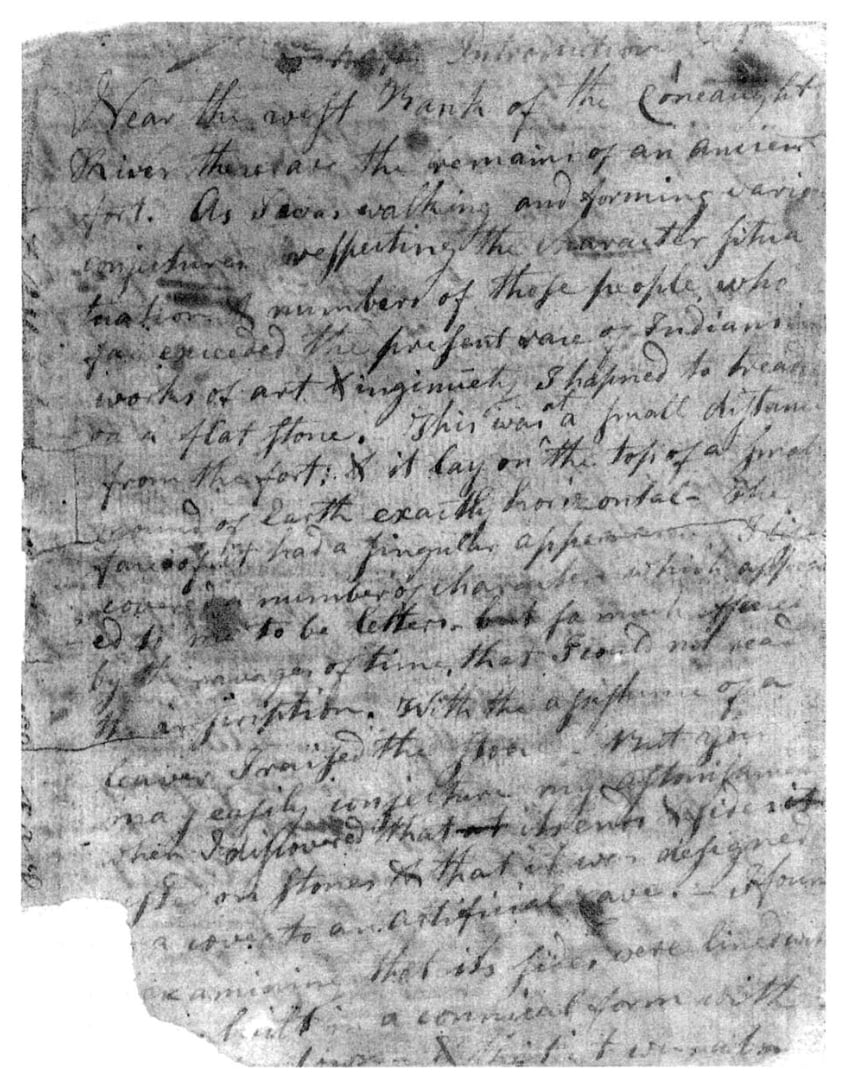 Introduction
Near the west Bank of the Coneaught
River there are the remains of an ancient
fort. As I was walking and forming vario
conjectures respecting the character situa
tuation & numbers of those people who
far exceeded the present race of Indians in
works of art & inginuety I hapned to tread
on a flat stone. This was at a small distanc
from the fort; & it lay on the top of a smal
mound of Earth exactly horizontal - The
face of it had a singular appearance I dis
covered a number of characters which appear
ed to me to be letters - but so much effaced
by the ravages of time, that I could not read
the inscription. With the assistance of a
leaver I raised the stone - But you
may easily conjecture my astonishment
when I discovered that its ends & sides
sted on stones & that it was designed
a cover to an artificial cave. - I foun
examining that its sides were lined wit
built in a connical form with
down & that it was